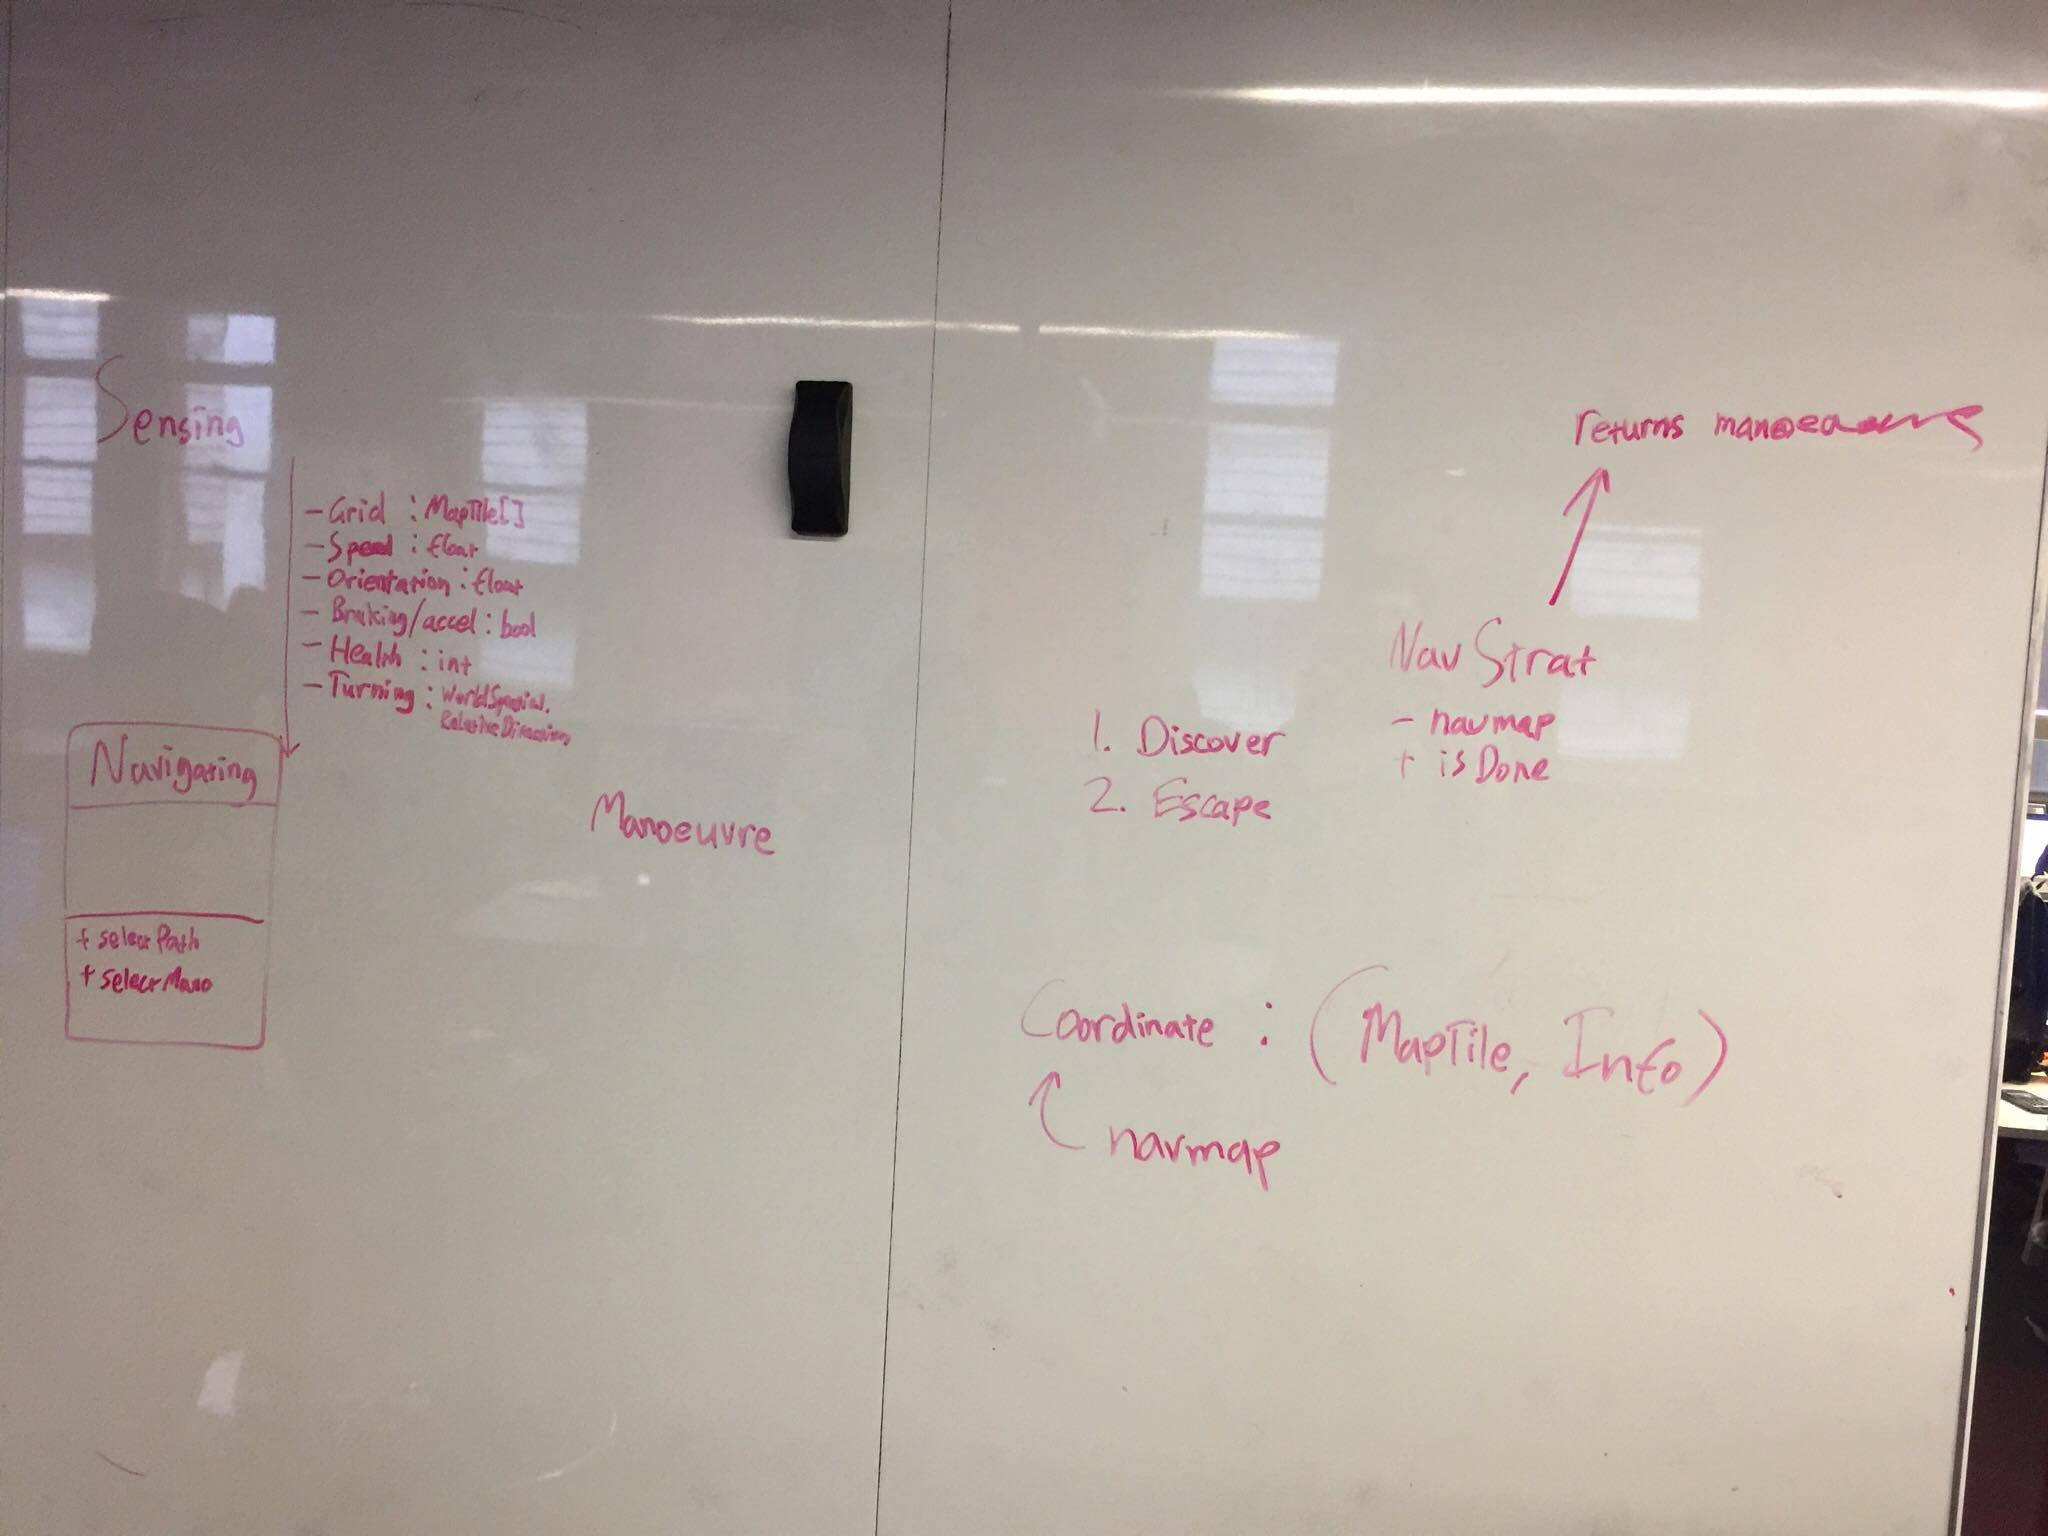 Sensing
- Grid : MapTile[]
- Speed : float
- Orientation : float
- Braking/accel : bool
- Health : int
- Turning : WorldSpatial.
RelativeDirection
Navigating
+ selectPath
+ selectMano
Manoeuvre
returns
NavStrat
- navmap
+ isDone
1. Discover
2. Escape
Coordinate : (MapTile, Info)
navmap